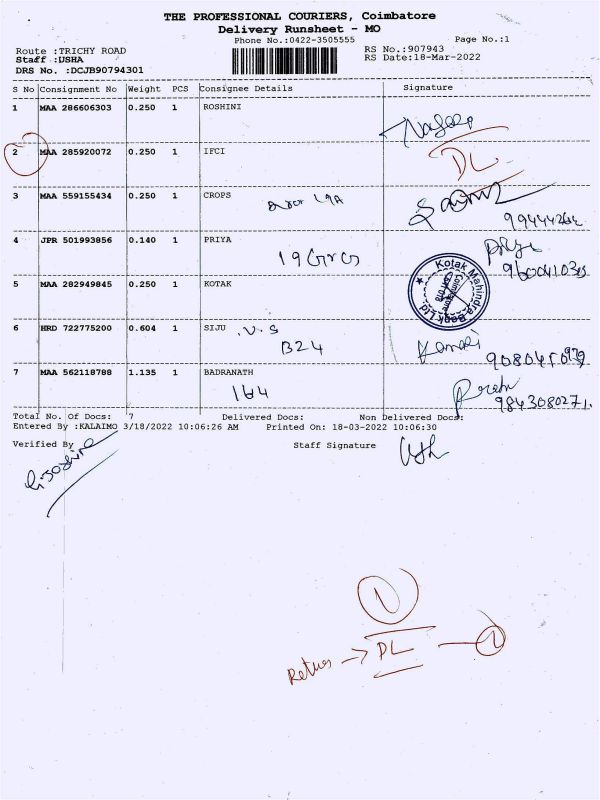 THE PROFESSIONAL COURIERS, Coimbatore
Delivery Runsheet - MO
Phone No.:0422-3505555
Page No.:1
Route :TRICHY ROAD
RS No.:907943
Staff :USHA
RS Date:18-Mar-2022
DRS No. :DCJB90794301
S No Consignment No Weight PCS Consignee Details Signature
1 MAA 286606303 0.250 1 ROSHINI
2 MAA 285920072 0.250 1 IFCI DL
3 MAA 559155434 0.250 1 CROPS
4 JPR 501993856 0.140 1 PRIYA
5 MAA 282949845 0.250 1 KOTAK Kotak Mahindra Bank Ltd
6 HRD 722775200 0.604 1 SIJU .V.S
B24
7 MAA 562118788 1.135 1 BADRANATH
164
9843080271.
Total No. Of Docs: 7 Delivered Docs: Non Delivered Docs:
Entered By :KALAIMO 3/18/2022 10:06:26 AM Printed On: 18-03-2022 10:06:30
Verified By Staff Signature
1
Return → DL — 1